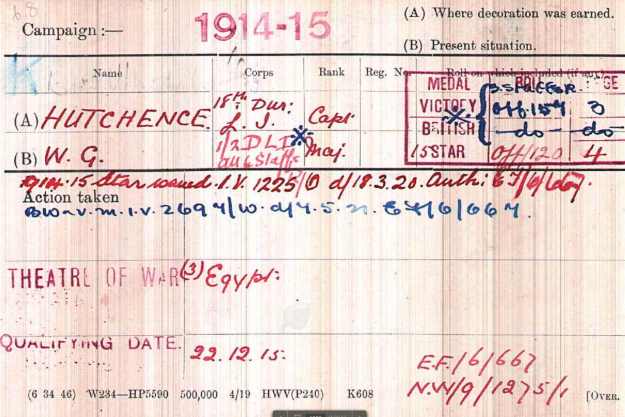 68
Campaign :— 1914-15
(A) Where decoration was earned.
(B) Present situation.
Name Corps Rank Reg. No. Roll on which included (if any)
MEDAL ROLL GE
(A) HUTCHENCE. 18th Dur: L. I. Capt.
VICTORY Off 157 3
BRITISH do do
15 STAR Off/120 4
(B) W. G. 1/2 D L I Maj.
1914.15 Star issued. I.V. 1225/ d/18.3.20. Auth: EF/6/667.
Action taken
BW & V. M. I.V. 2694/W. EF/6/667.
THEATRE OF WAR (3) Egypt:
QUALIFYING DATE. 22.12.15.
E.F./6/667
N.W/9/1275/1
(6 34 46) W234—HP5590 500,000 4/19 HWV(P240) K608 [OVER.